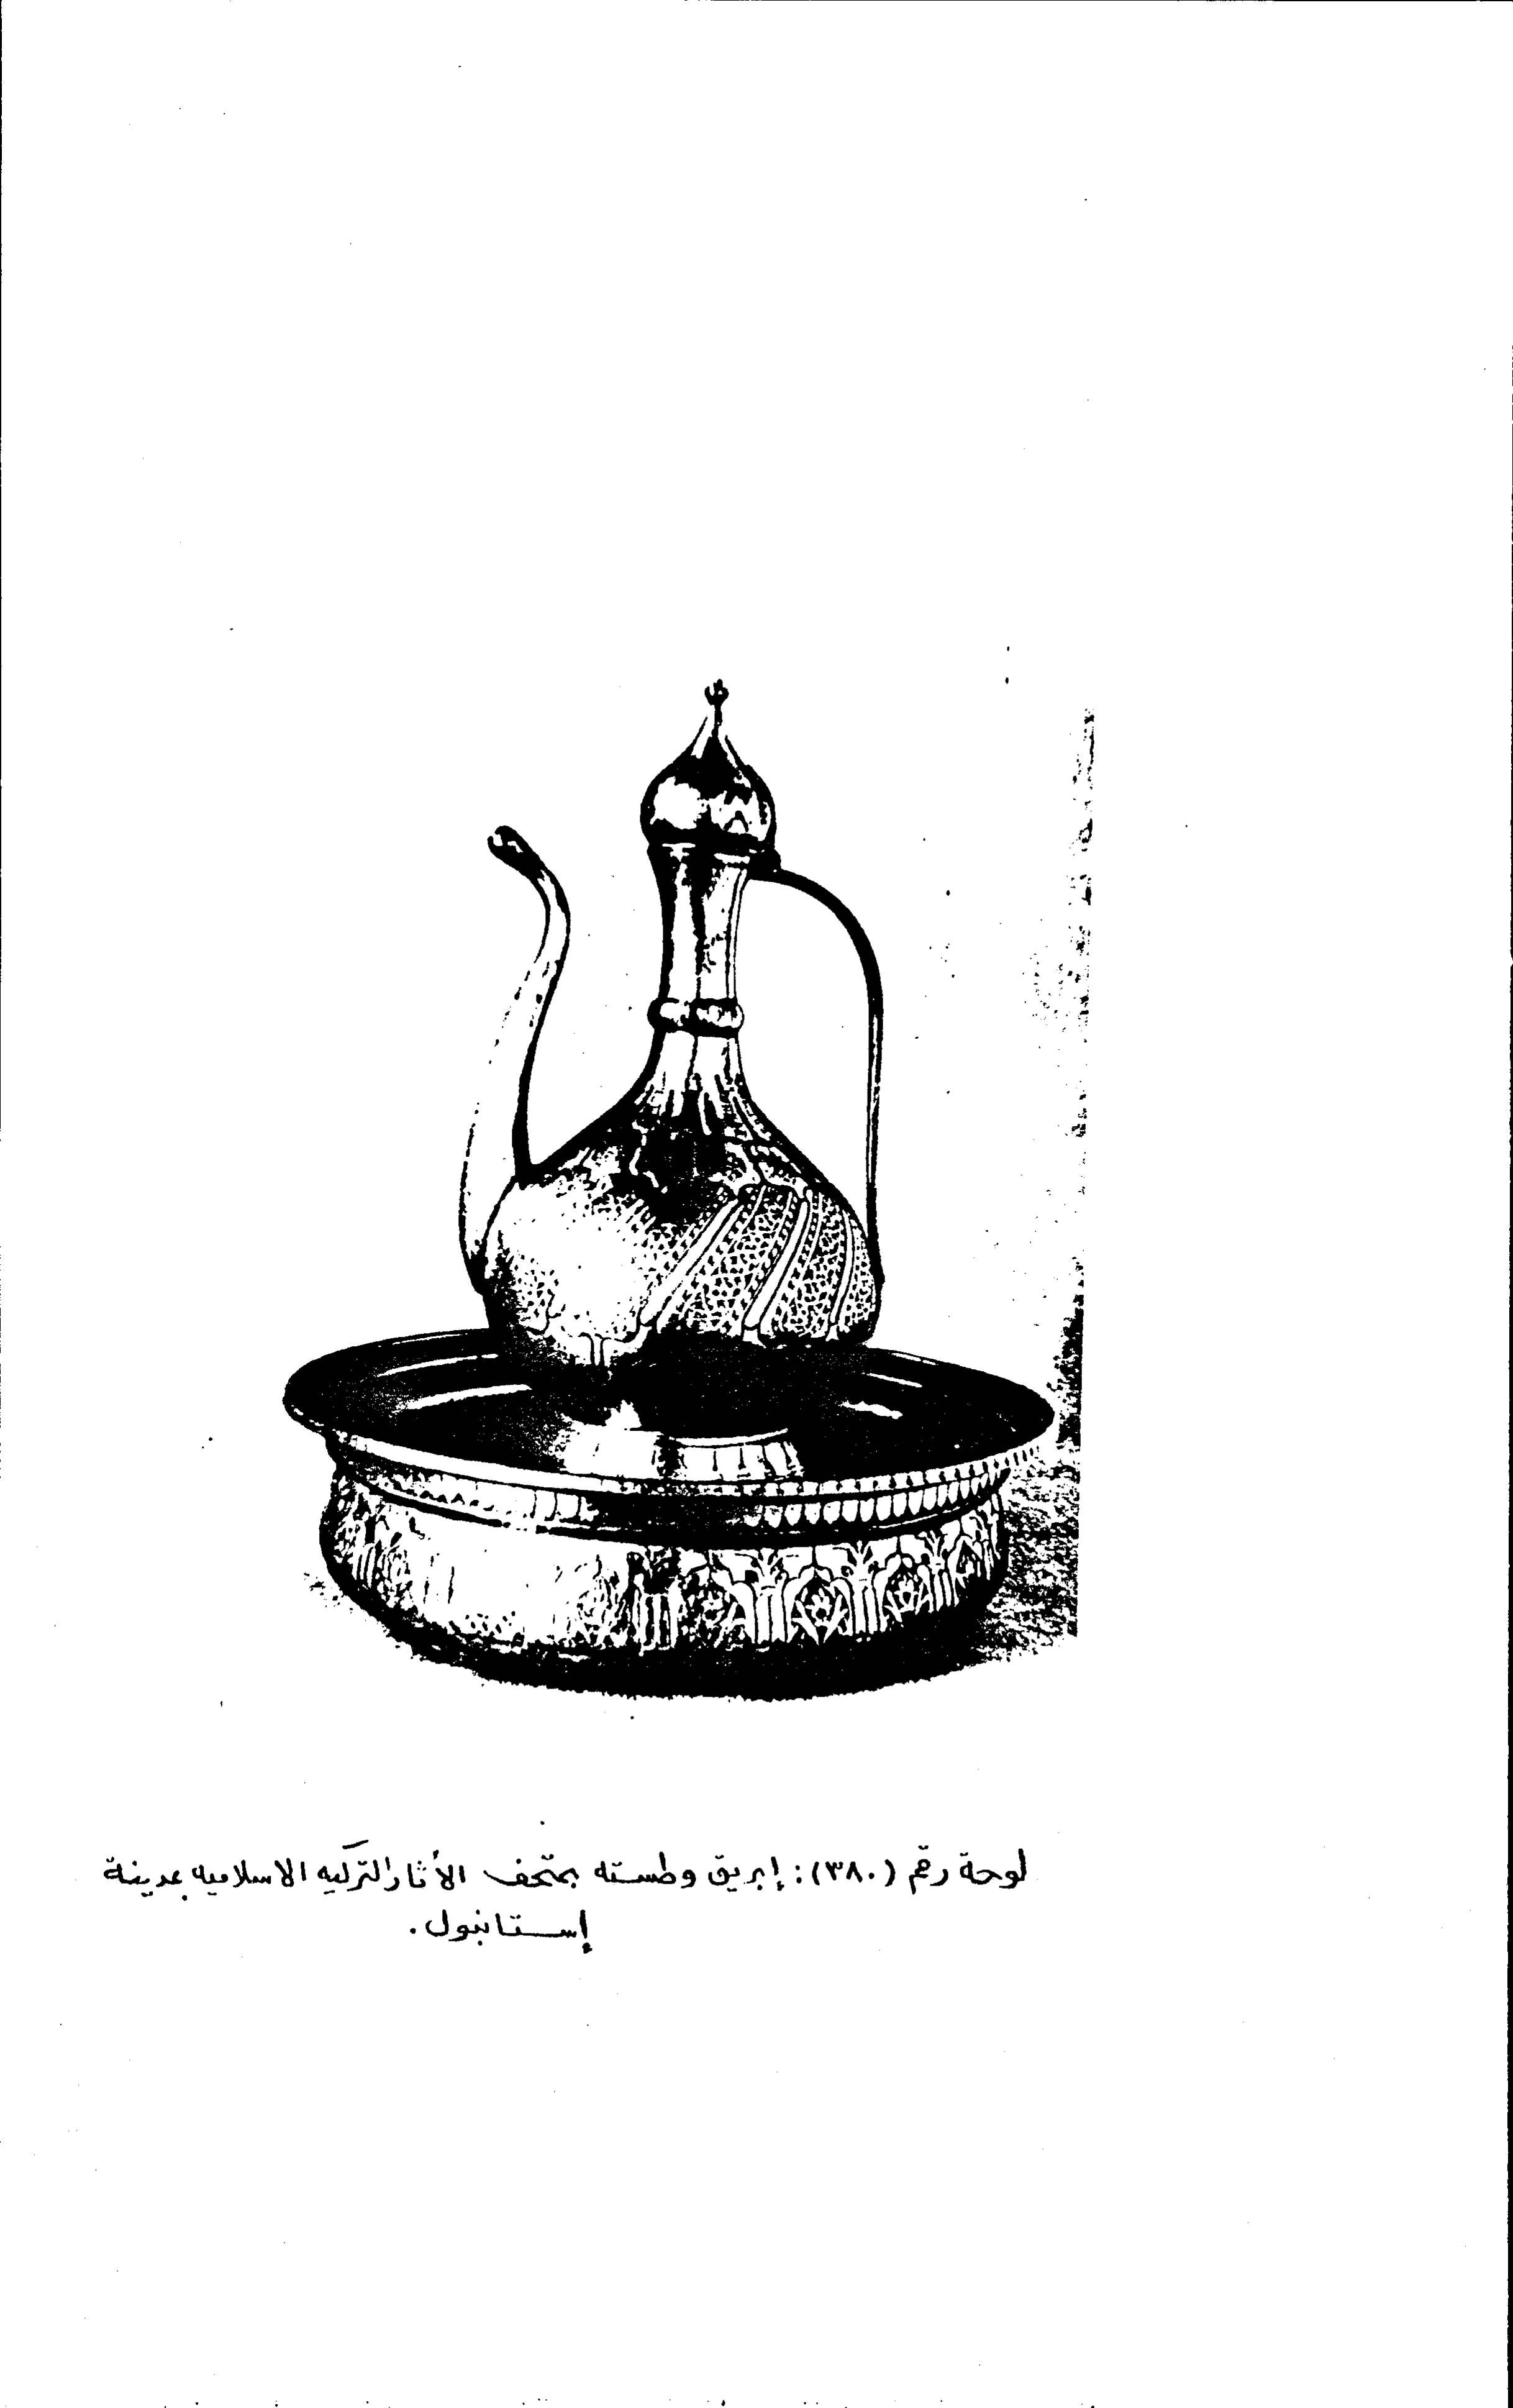 لوحة رقم (٣٨٠): إبريق وطسته بمتحف الأثار التركيه الاسلاميه بمدينة
إستانبول.